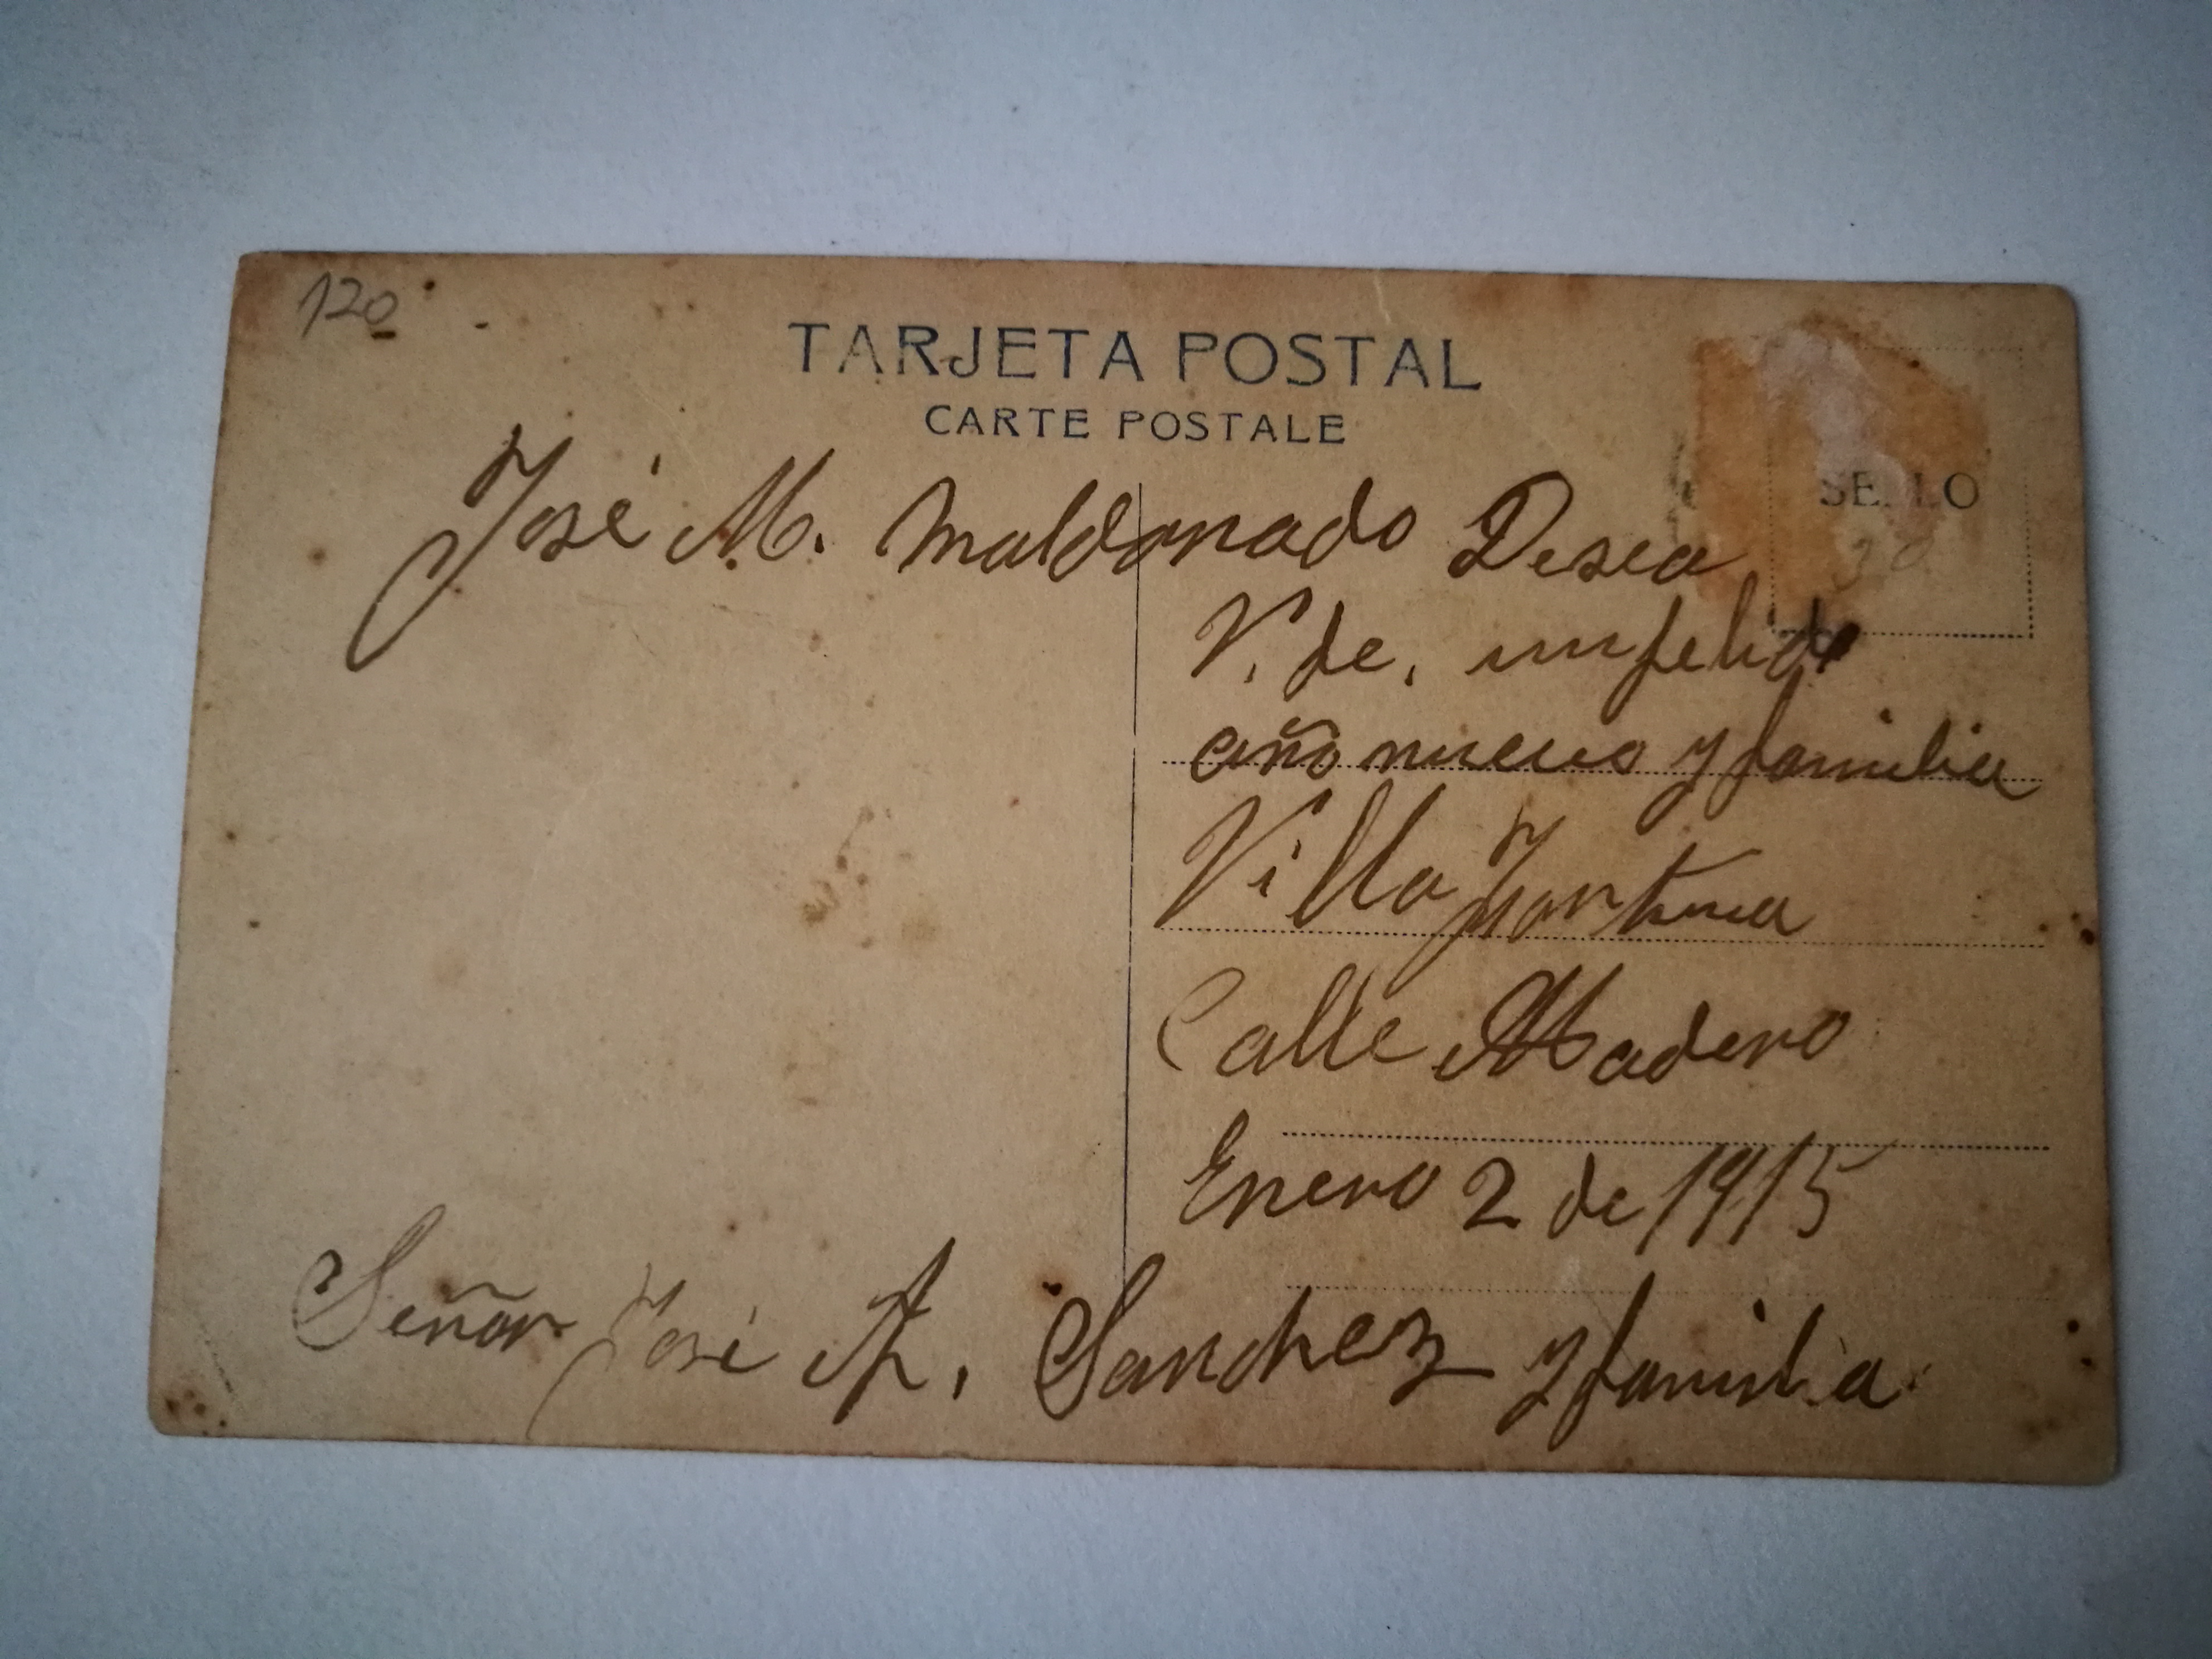 120
TARJETA POSTAL
CARTE POSTALE
SELLO
30
José M. Maldonado Desea
V. de, un felid
año nuevo y familia
Villa
Calle Madero
Enero 2 de 1915
Señor José A. Sanchez y familia